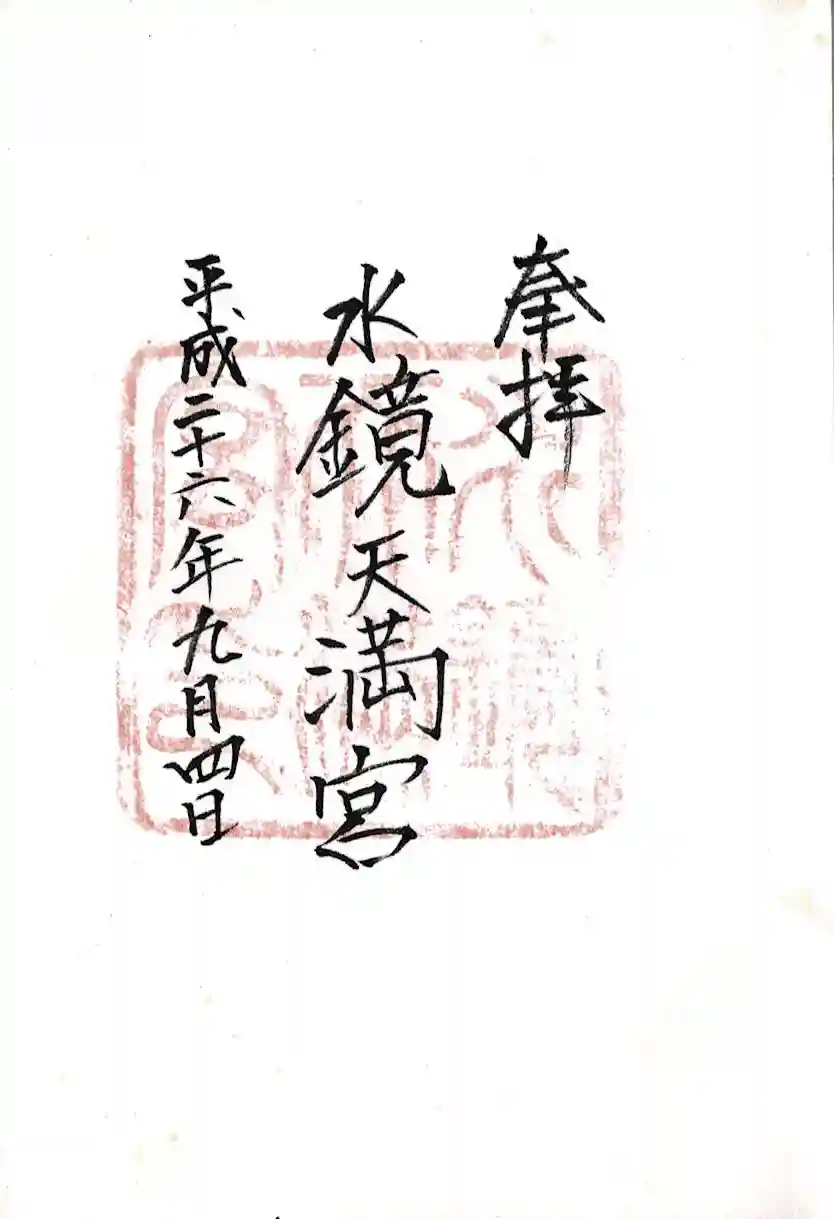 奉拝
水鏡天満宮
平成二十六年九月四日